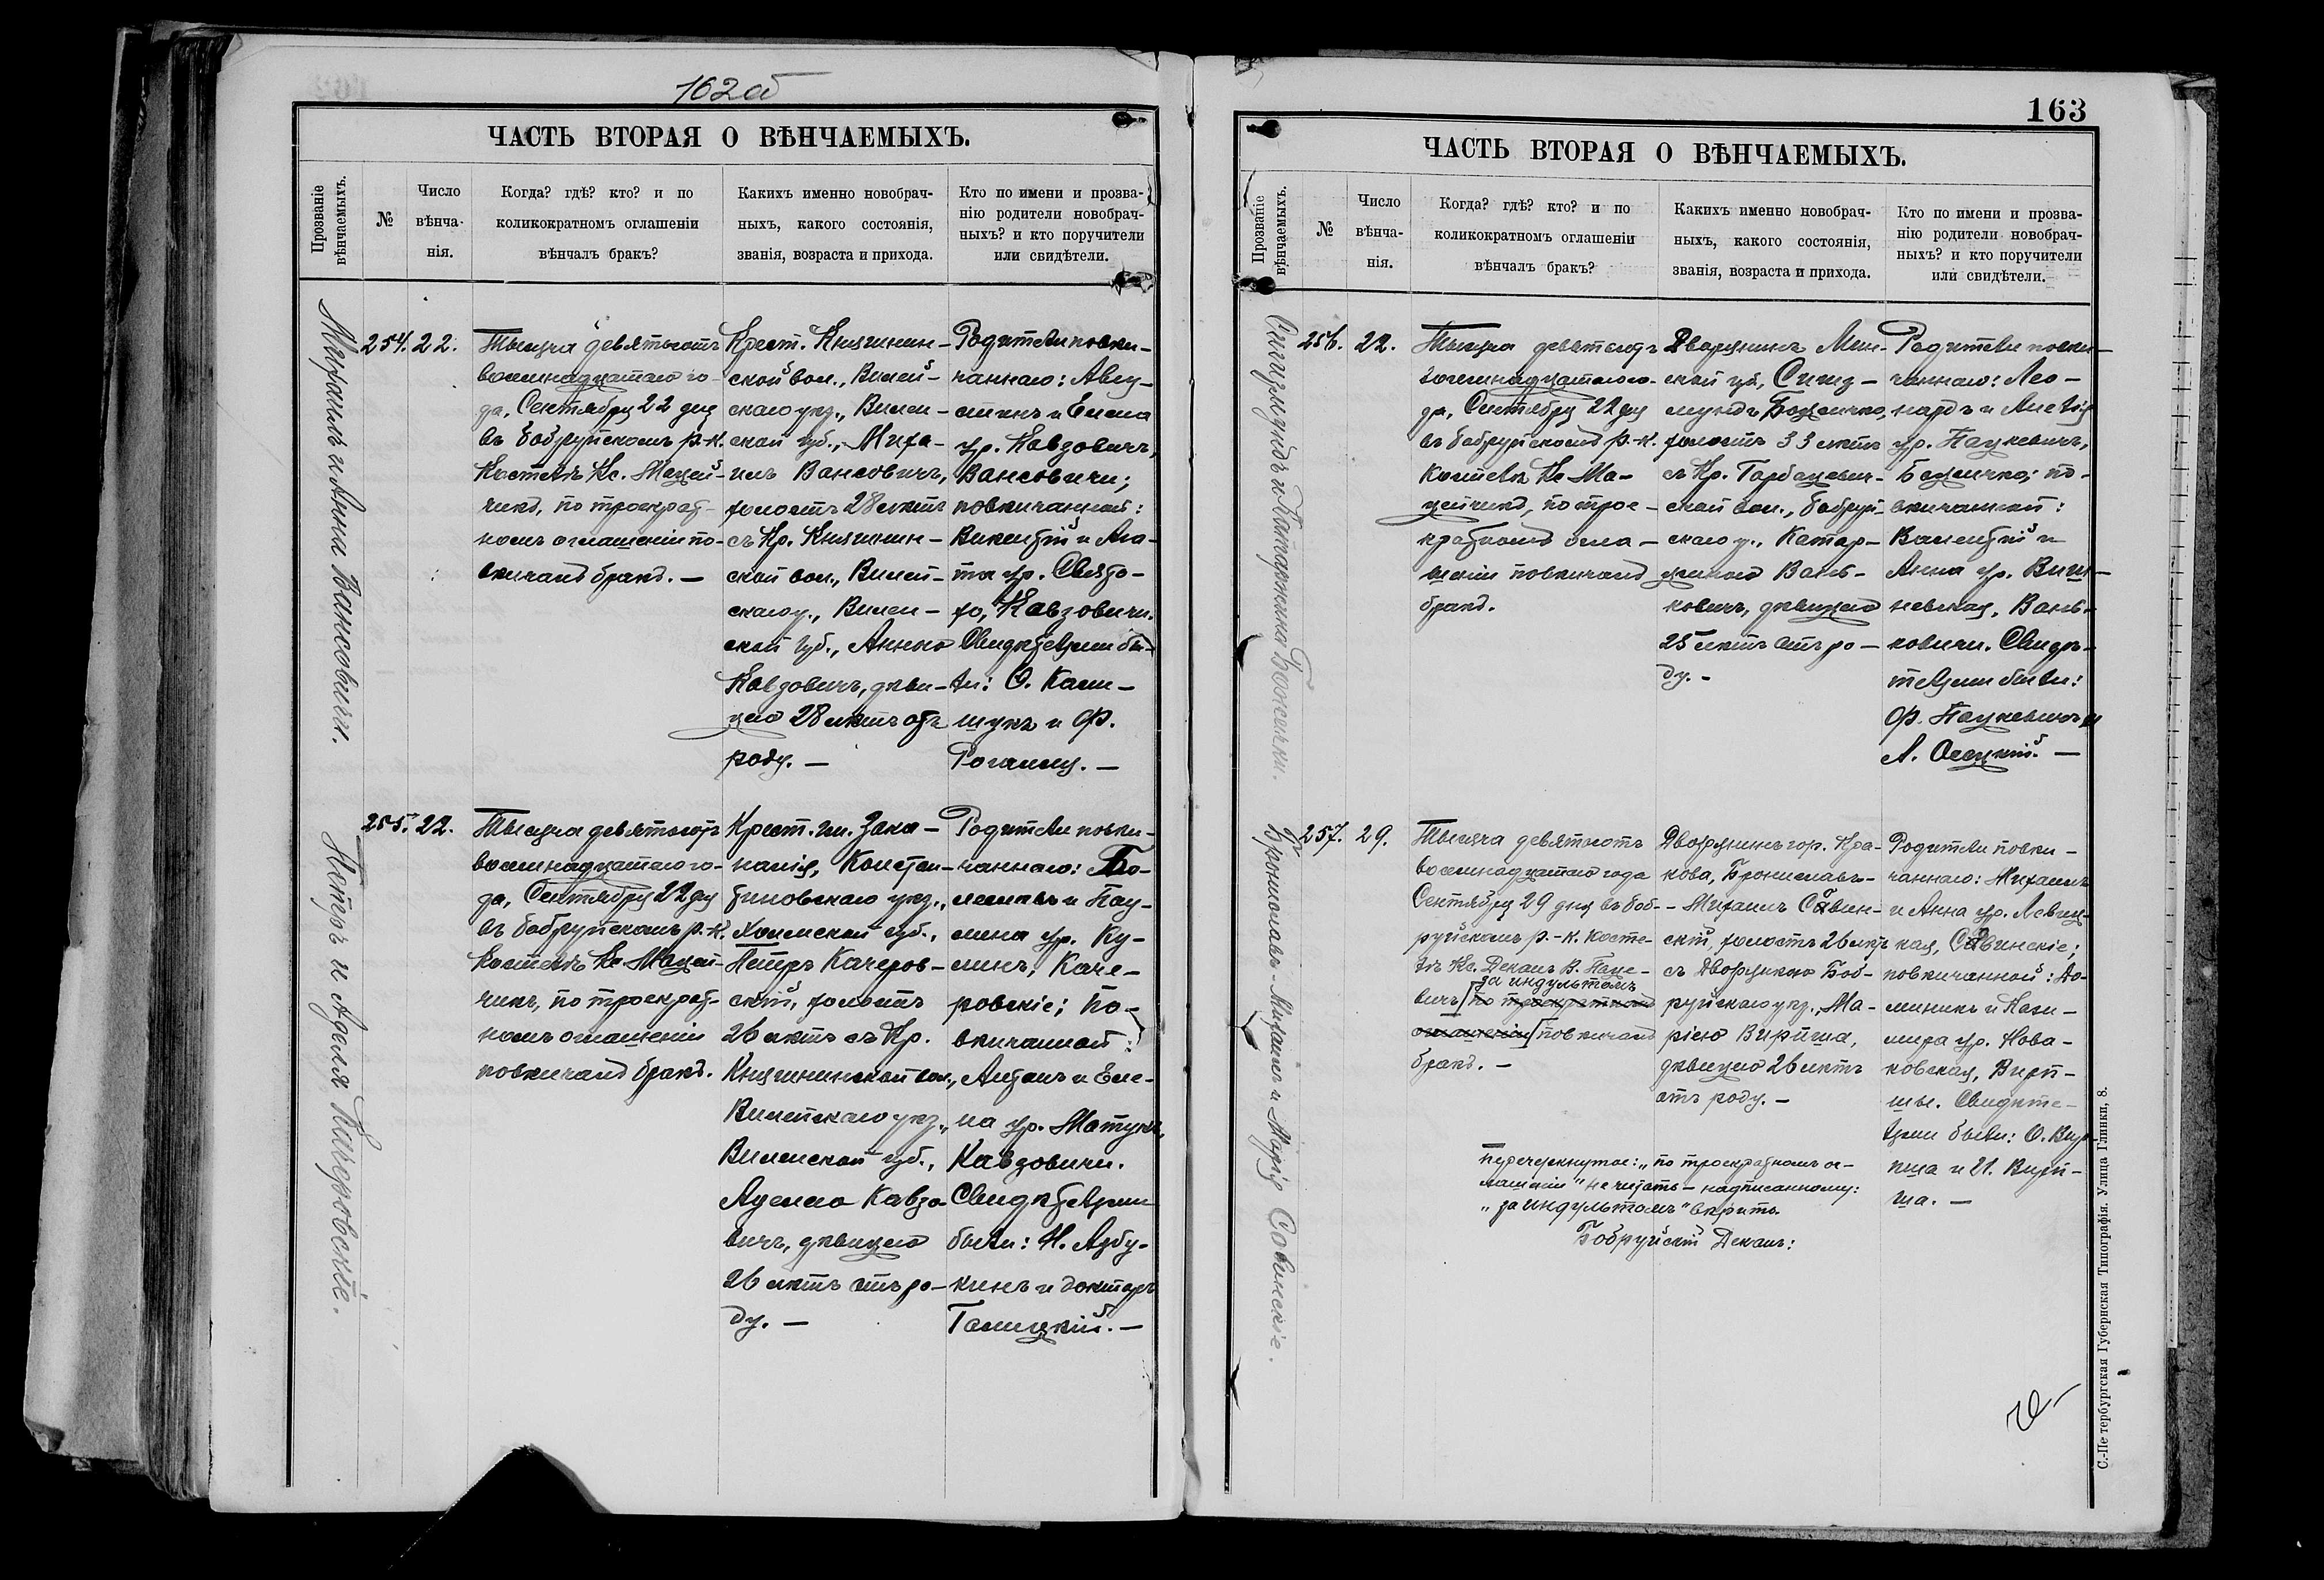 162об
ЧАСТЬ ВТОРАЯ О ВѢНЧАЕМЫХЪ.
Прозваніе вѣнчаемыхъ.
№
Число вѣнча-нія.
Когда? гдѣ? кто? и по
коликократномъ оглашеніи
вѣнчалъ бракъ?
Какихъ именно новобрач-
ныхъ, какого состоянія,
званія, возраста и прихода.
Кто по имени и прозва-
нію родители новобрач-
ныхъ? и кто поручители
или свидѣтели.
Михаилъ и Анна Вансовичи.
254.
22.
Тысяча девятьсотъ
восемнадцатаго го-
да, Сентября 22 дня
въ Бобруйскомъ р.-к.
Костелѣ Кс. Мацей-
чикъ, по троекрат-
номъ оглашеніи по-
вѣнчалъ бракъ. —
Крест. Княгинин-
ской вол., Вилей-
скаго уѣз., Вилен-
ской губ., Миха-
илъ Вансовичъ,
холостъ 28 лѣтъ
съ Кр. Княгинин-
ской вол., Вилей-
скаго у., Вилен-
ской губ., Анною
Кавзовичъ, дѣви-
цею 28 лѣтъ отъ
роду. —
Родители повѣн-
чаннаго: Авгу-
стинъ и Елена
ур. Кавзовичъ,
Вансовичи;
повѣнчанной:
Викентій и Ага-
та ур. Свято-
хо, Кавзовичи.
Свидѣтелями бы-
ли: О. Каши-
щукъ и Ф.
Петръ и Аделя Качеровскіе.
255.
22.
Тысяча девятьсотъ
восемнадцатаго го-
да, Сентября 22 дня
въ Бобруйскомъ р.-к.
Костелѣ Кс. Мацей-
чикъ, по троекрат-
номъ оглашеніи
повѣнчалъ бракъ.
Крест. гм. Зака-
налія, Констан-
тиновскаго уѣз.,
Холмской губ.,
Петръ Качеров-
скій, холостъ
26 лѣтъ съ Кр.
Княгининской вол.,
Вилейскаго уѣз.,
Виленской губ.,
Аделею Кавзо-
вичъ, дѣвицею
26 лѣтъ отъ ро-
ду. —
Родители повѣн-
чаннаго: Бо-
леславъ и Пау-
лина ур. Ку-
линъ, Каче-
ровскіе; по-
вѣнчанной:
Антонъ и Еле-
на ур. Матукъ,
Кавзовичи.
Свидѣтелями
были: Н. Азбу-
кинъ и докторъ
Галицкій. —
163
ЧАСТЬ ВТОРАЯ О ВѢНЧАЕМЫХЪ.
Прозваніе вѣнчаемыхъ.
№
Число вѣнча-нія.
Когда? гдѣ? кто? и по
коликократномъ оглашеніи
вѣнчалъ бракъ?
Какихъ именно новобрач-
ныхъ, какого состоянія,
званія, возраста и прихода.
Кто по имени и прозва-
нію родители новобрач-
ныхъ? и кто поручители
или свидѣтели.
Сигизмундъ и Катаржина Божечки.
256.
22.
Тысяча девятьсотъ
восемнадцатаго го-
да, Сентября 22 дня
въ Бобруйскомъ р.-к.
Костелѣ Кс. Ма-
цейчикъ, по трое-
кратномъ огла-
шеніи повѣнчалъ
бракъ.
Дворянинъ Мин-
ской губ., Сигиз-
мундъ Божечко,
холостъ 33 лѣтъ
съ Кр. Горбацевич-
ской вол., Бобруй-
скаго у., Катар-
жиною Вань-
ковичъ, дѣвицею
25 лѣтъ отъ ро-
ду. —
Родители повѣн-
чаннаго: Лео-
нардъ и Амелія
ур. Пацкевичъ,
Божечко; по-
вѣнчанной:
Валентій и
Анна ур. Виш-
невская, Вань-
ковичи. Свидѣ-
телями были:
Ф. Пацкевичъ и
А. Осецкій. —
Брониславъ-Михаилъ и Марія Совинскіе.
257.
29.
Тысяча девятьсотъ
восемнадцатаго года
Сентября 29 дня въ Боб-
руйскомъ р.-к. Косте-
лѣ Кс. Деканъ В. Паце-
за индультомъ
вичъ [по троекратномъ
оглашеніи] повѣнчалъ
бракъ. —
Дворянинъ гор. Кра-
кова, Брониславъ-
-Михаилъ Совин-
скій, холостъ 26 лѣтъ
съ Дворянкою Боб-
руйскаго уѣз., Ма-
ріею Вирпша,
дѣвицею 26 лѣтъ
отъ роду. —
Родители повѣн-
чаннаго: Михаилъ
и Анна ур. Левиц-
кая, Совинскіе;
повѣнчанной: До-
миникъ и Кази-
мира ур. Нова-
ковская, Вирп-
ши. Свидѣте-
лями были: О. Вир-
пша и И. Вирп-
ша. —
Перечеркнутое: „по троекратномъ ог-
лашеніи" не читать — надписанному:
„за индультомъ" вѣрить.
Бобруйскій Деканъ:
С.-Петербургская Губернская Типографія. Улица Глинки, 8.